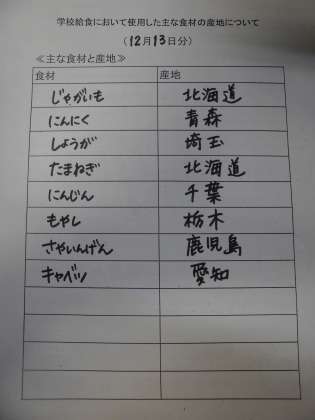 学校給食において使用した主な食材の産地について
(12月13日分)
≪主な食材と産地≫
食材 産地
じゃがいも 北海道
にんにく 青森
しょうが 埼玉
たまねぎ 北海道
にんじん 千葉
もやし 栃木
さやいんげん 鹿児島
キャベツ 愛知